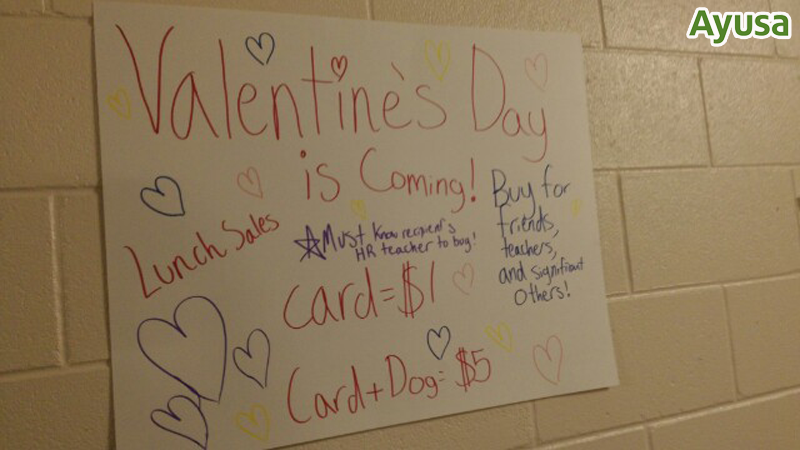 Ayusa
Valentine's Day
is Coming!
Lunch Sales
Must know recipent's
HR teacher to buy!
Buy for
friends,
teachers,
and significant
others!
Card=$1
Card+Dog=$5